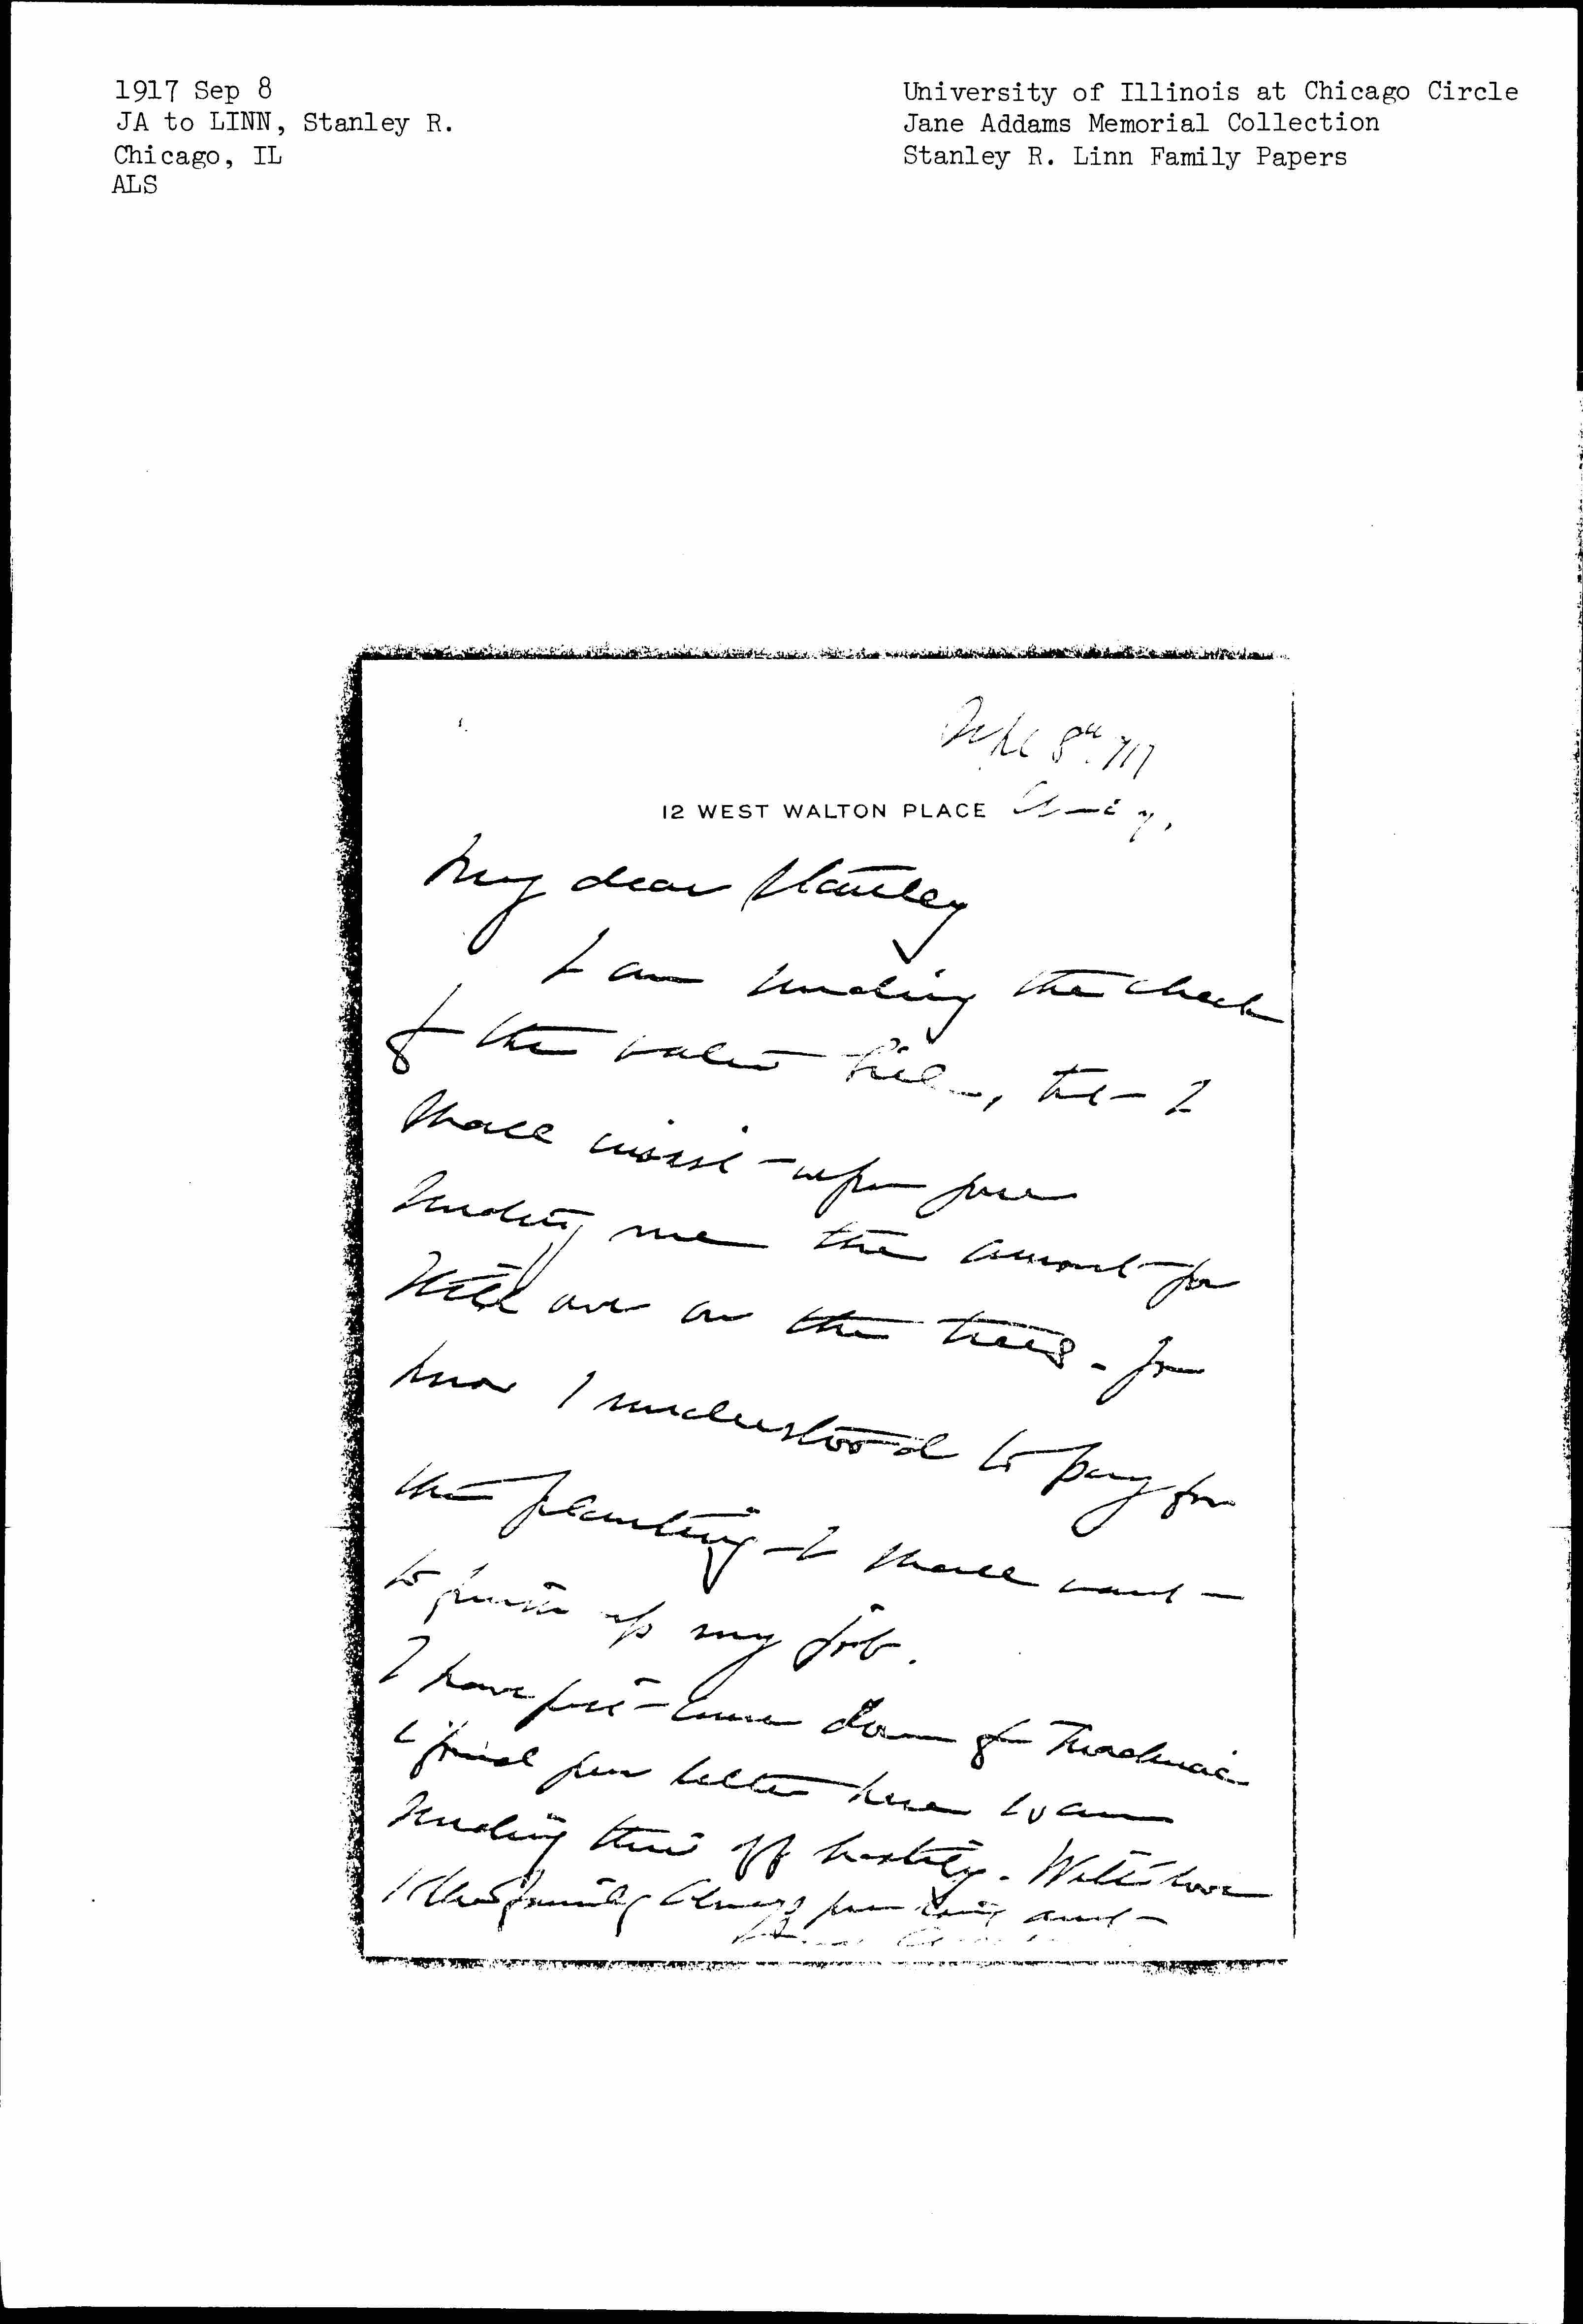 1917 Sep 8
JA to LINN, Stanley R.
Chicago, IL
ALS
University of Illinois at Chicago Circle
Jane Addams Memorial Collection
Stanley R. Linn Family Papers
Sept 8" '17
12 WEST WALTON PLACE
My dear Stanley
I am sending the check
for the water bill, but I
shall insist upon your
sending me the amount for
still due on the trees. You
know I understood to pay for
the planting - I shall want
to finish up my job.
I have just come down from Mackinac
& find your letter here & am
sending this off hastily. With love
to the family always your loving aunt
Jane Addams